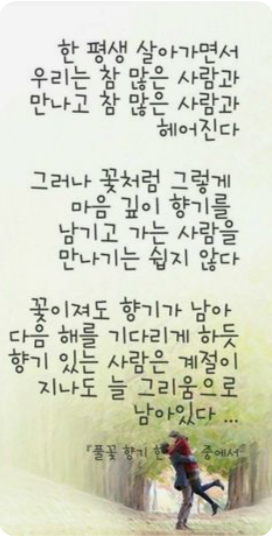 한 평생 살아가면서
우리는 참 많은 사람과
만나고 참 많은 사람과
헤어진다
그러나 꽃처럼 그렇게
마음 깊이 향기를
남기고 가는 사람을
만나기는 쉽지 않다
꽃이져도 향기가 남아
다음 해를 기다리게 하듯
향기 있는 사람은 계절이
지나도 늘 그리움으로
남아있다 ...
『풀꽃 향기 한 중에서』